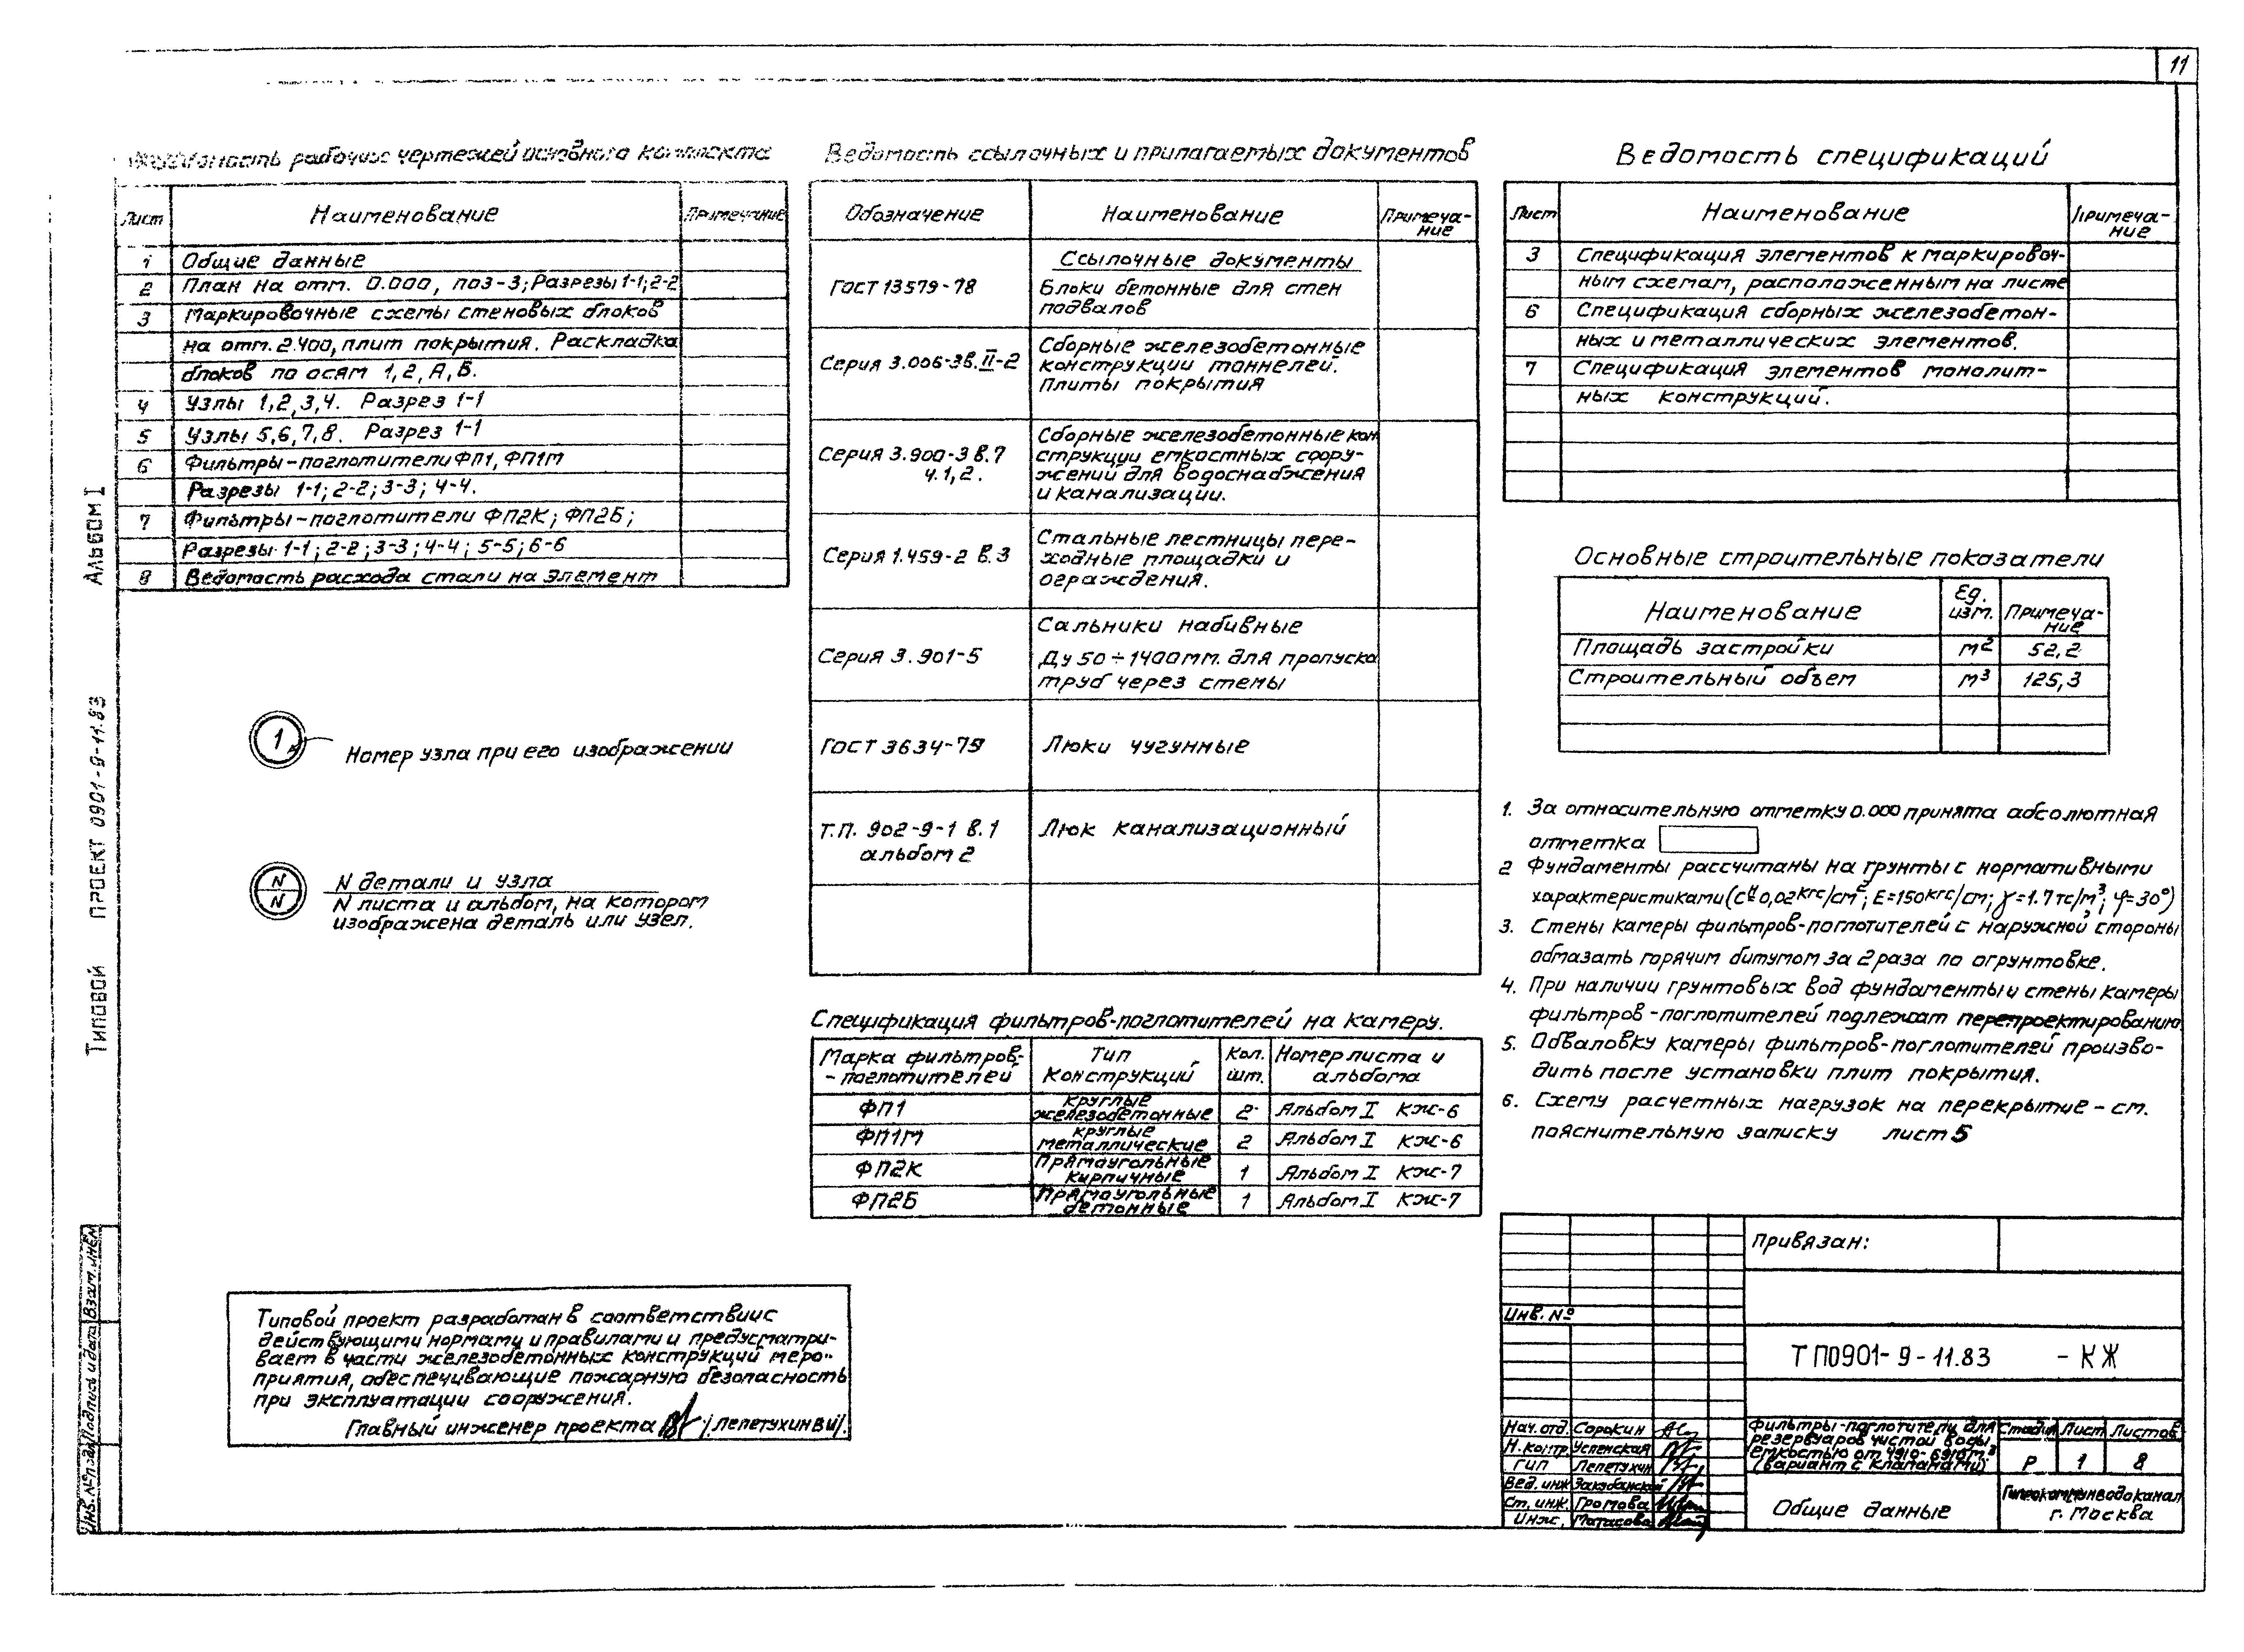 11
Ведомость рабочих чертежей основного комплекта
Лист Наименование Примечание
1 Общие данные
2 План на отм. 0.000, поз-3; Разрезы 1-1; 2-2
3 Маркировочные схемы стеновых блоков
на отм. 2.400, плит покрытия. Раскладка
блоков по осям 1, 2, А, Б.
4 Узлы 1, 2, 3, 4. Разрез 1-1
5 Узлы 5, 6, 7, 8. Разрез 1-1
6 Фильтры-поглотители ФП1, ФП1М
Разрезы 1-1; 2-2; 3-3; 4-4.
7 Фильтры-поглотители ФП2К; ФП2Б;
Разрезы 1-1; 2-2; 3-3; 4-4; 5-5; 6-6
8 Ведомость расхода стали на элемент
1
Номер узла при его изображении
N
N
N детали и узла
N листа и альбом, на котором
изображена деталь или узел.
Ведомость ссылочных и прилагаемых документов
Обозначение Наименование Примеча-
ние
Ссылочные документы
ГОСТ 13579-78 Блоки бетонные для стен
подвалов
Серия 3.006-3в.II-2 Сборные железобетонные
конструкции тоннелей.
Плиты покрытия
Серия 3.900-3 в.7
ч.1, 2.
Сборные железобетонные кон
струкции емкостных соору-
жений для водоснабжения
и канализации.
Серия 1.459-2 в.3 Стальные лестницы пере-
ходные площадки и
ограждения.
Серия 3.901-5 Сальники набивные
Ду 50÷1400мм. для пропуска
труб через стены
ГОСТ 3634-79 Люки чугунные
Т.П. 902-9-1 в.1
альбом 2
Люк канализационный
Спецификация фильтров-поглотителей на камеру.
Марка фильтров-
-поглотителей
Тип
конструкций
Кол.
шт.
Номер листа и
альбома
ФП1 круглые
железобетонные 2 Альбом I КЖ-6
ФП1М круглые
металлические 2 Альбом I КЖ-6
ФП2К Прямоугольные
кирпичные 1 Альбом I КЖ-7
ФП2Б Прямоугольные
бетонные 1 Альбом I КЖ-7
Ведомость спецификаций
Лист Наименование Примеча-
ние
3 Спецификация элементов к маркировоч-
ным схемам, расположенным на листе
6 Спецификация сборных железобетон-
ных и металлических элементов.
7 Спецификация элементов монолит-
ных конструкций.
Основные строительные показатели
Наименование Ед.
изм. Примеча-
ние
Площадь застройки м² 52,2
Строительный объем м³ 125,3
1. За относительную отметку 0.000 принята абсолютная
отметка
2 Фундаменты рассчитаны на грунты с нормативными
характеристиками (сн 0,02 кгс/см²; Е=150 кгс/см; γ=1.7 тс/м³; φ=30°)
3. Стены камеры фильтров-поглотителей с наружной стороны
обмазать горячим битумом за 2 раза по огрунтовке.
4. При наличии грунтовых вод фундаменты и стены камеры
фильтров-поглотителей подлежат перепроектированию
5. Обваловку камеры фильтров-поглотителей произво-
дить после установки плит покрытия.
6. Схему расчетных нагрузок на перекрытие - см.
пояснительную записку лист 5
Типовой проект разработан в соответствии с
действующими нормами и правилами и предусматри-
вает в части железобетонных конструкций меро-
приятия, обеспечивающие пожарную безопасность
при эксплуатации сооружения.
Главный инженер проекта /Лепетухин ВИ/.
Привязан:
Инв. №
ТП0901-9-11.83 -КЖ
Нач. отд. Сорокин
Н. контр. Успенская
ГИП Лепетухин
Вед. инж
Ст. инж. Громова
Инж. Матасова
Фильтры-поглотители для
резервуаров чистой воды
емкостью от 4910-6910м³
(вариант с клапанами)
Стадия Лист Листов
Р 1 8
Общие данные
Гипрокоммунводоканал
г. Москва
Типовой проект 0901-9-11.83 Альбом I
Инв. № подл Подпись и дата Взам. инв. №